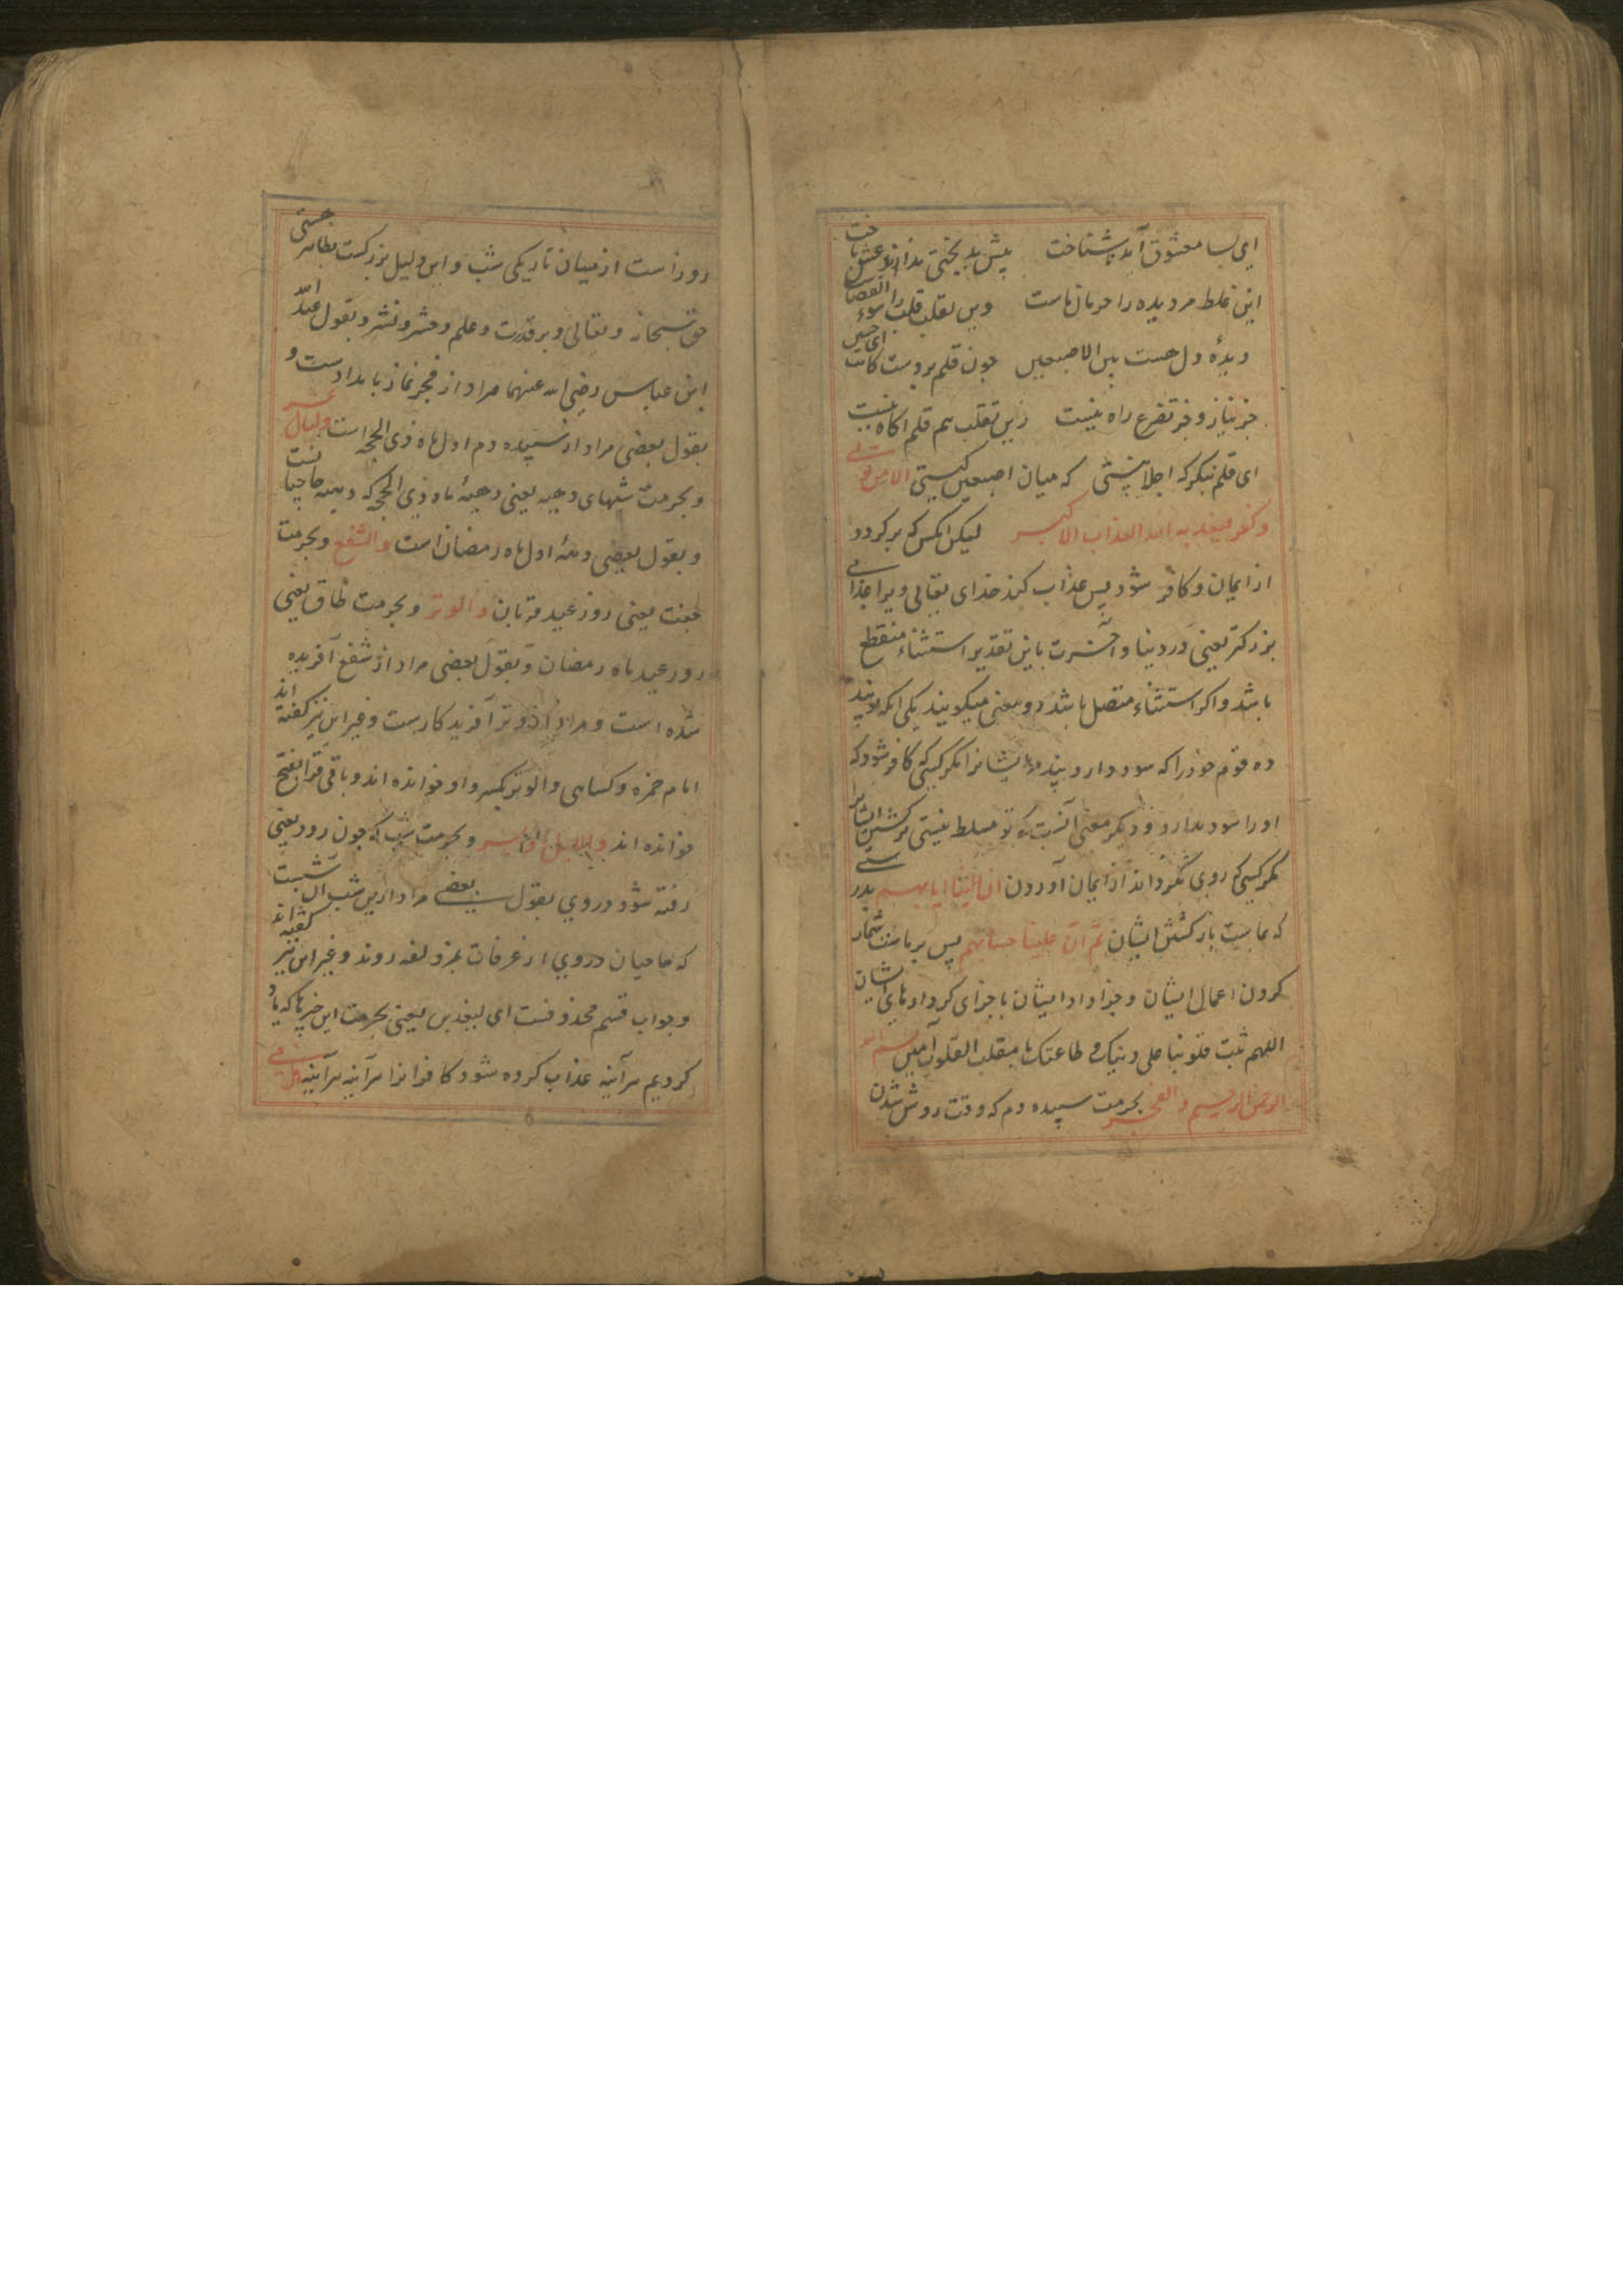 ای بسا معشوق آید ناشناخت پیش بدبختی نداند عشق باخت
این غلط مر دیده را حرمان ماست وین تقلب قلب را سوء القضاست
دیدهٔ دل هست بین الاصبعین چون قلم بر دست کاتب ای حسین
جز نیاز و جز تضرع راه نیست زین تقلب هم قلم اکاه نیست
ای قلم بنکر که اجلالیستی که میان اصبعین کیستی الا من تولی
وکفر فیعذبه الله العذاب الاکبر لیکن انکس که برکردد
از ایمان و کافر شود پس عذاب کند خدای تعالی ویرا عذابی
بزرکتر یعنی در دنیا و آخرت باین تقدیر استثناء منقطع
باشد و اکر استثناء متصل باشد دو معنی میکویند یکی انکه تو پند
ده قوم خود را که سود دارد پند ایشانرا مکر کسی که کافر شود که
او را سود ندارد و دیکر معنی آنست که تو مسلط نیستی بر کشتن ایشان
مکر کسی که روی بکرداند از ایمان آوردن ان الینا ایابهم بدرستی
که بماست بازکشتن ایشان ثم ان علینا حسابهم پس بر ماست شمار
کردن اعمال ایشان و جزا دادن ایشان با جزای کردارهای ایشان
اللهم ثبت قلوبنا علی دینک و طاعتک یا مقلب القلوب آمین بسم الله
الرحمن الرحیم والفجر بحرمت سپیده دم که وقت روشن شدن
روز است از میان تاریکی شب و این دلیل بزرکست بظاهر هستی
حق سبحانه و تعالی و بر قدرت و علم و حشر و نشر و بقول عبد الله
ابن عباس رضی الله عنهما مراد از فجر نماز بامدادست و
بقول بعضی مراد از سپیده دم اول ماه ذی الحجه است ولیال عشر
و بحرمت شبهای دهه یعنی دههٔ ماه ذی الحجه که دهه حاجیانست
و بقول بعضی دههٔ اول ماه رمضان است والشفع و بحرمت
جفت یعنی روز عید قربان والوتر و بحرمت طاق یعنی
روز عید ماه رمضان و بقول بعضی مراد از شفع آفریده
شده است و مراد از وتر آفریدکارست و غیر این نیز کفته اند
امام حمزه و کسایی والوتر بکسر واو خوانده اند و باقی قرا بفتح
خوانده اند واللیل اذا یسر و بحرمت شب که چون رود یعنی
رفته شود در وی بقول بعضی مراد ازین شب آن شبست
که حاجیان در وی از عرفات بمزدلفه روند و غیر این نیز کفته اند
و جواب قسم محذوفست ای لیعذبن یعنی بحرمت این چیزها که یاد
کردیم هرآینه عذاب کرده شود کافرانرا هرآینه هرآینه هل فی